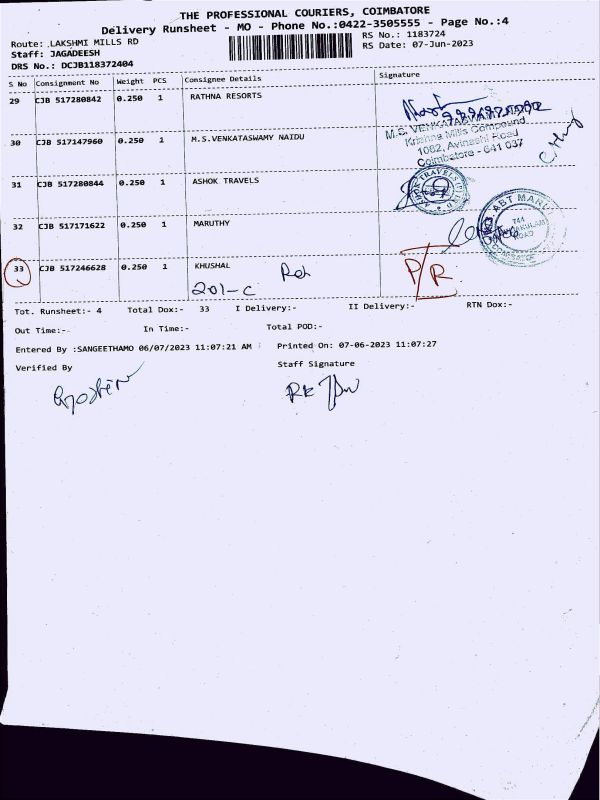 THE PROFESSIONAL COURIERS, COIMBATORE
Delivery Runsheet - MO - Phone No.:0422-3505555 - Page No.:4
Route: LAKSHMI MILLS RD
RS No.: 1183724
Staff: JAGADEESH
RS Date: 07-Jun-2023
DRS No.: DCJB118372404
S No Consignment No Weight PCS Consignee Details Signature
29 CJB 517280842 0.250 1 RATHNA RESORTS
30 CJB 517147960 0.250 1 M.S.VENKATASWAMY NAIDU
M.S. VENKATASWAMY NAIDU
Krishna Mills Compound
1062, Avinashi Road
Coimbatore - 641 037
31 CJB 517280844 0.250 1 ASHOK TRAVELS
ASHOK TRAVELS
32 CJB 517171622 0.250 1 MARUTHY
ABT MARUTI
744
ROAD
33 CJB 517246628 0.250 1 KHUSHAL
201-C
P/R
Tot. Runsheet:- 4 Total Dox:- 33 I Delivery:- II Delivery:- RTN Dox:-
Out Time:- In Time:- Total POD:-
Entered By :SANGEETHAMO 06/07/2023 11:07:21 AM Printed On: 07-06-2023 11:07:27
Verified By Staff Signature